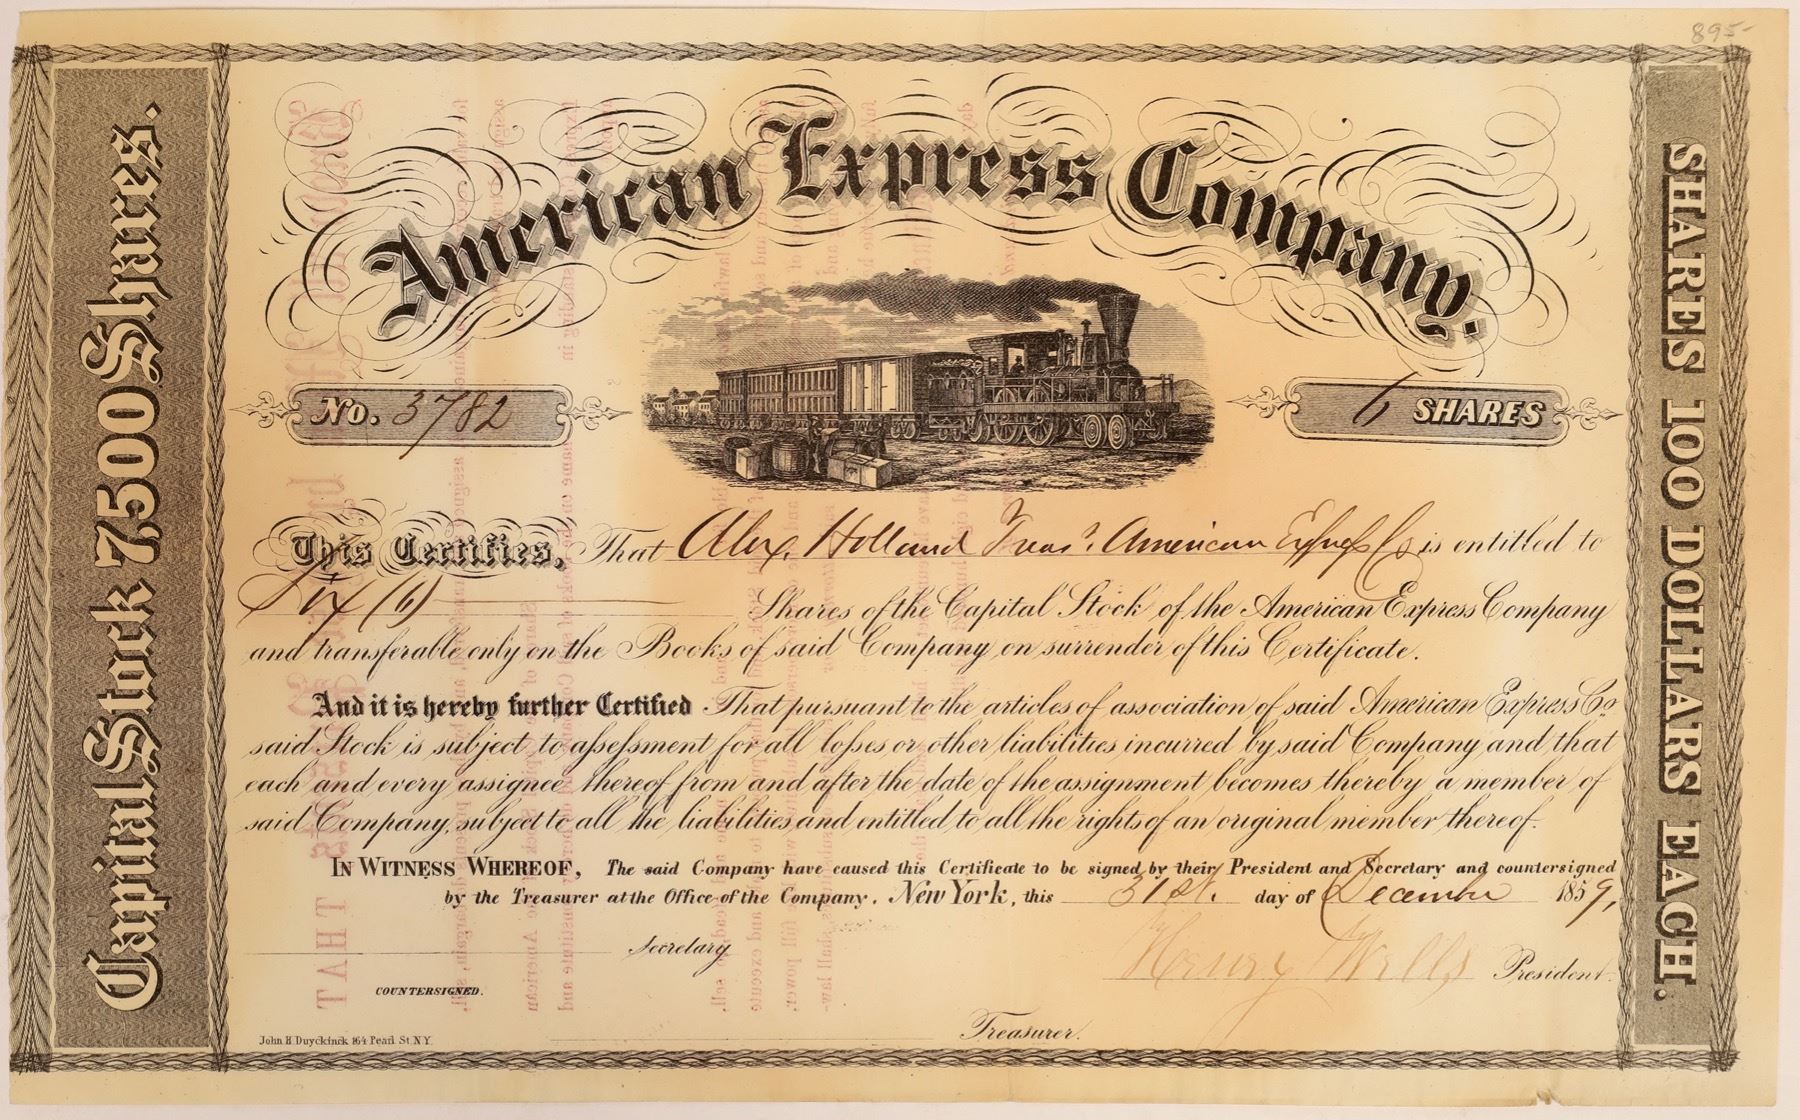 895-
American Express Company.
Capital Stock 7,500 Shares.
SHARES 100 DOLLARS EACH.
No. 3782
6 SHARES
This Certifies, That Alex. Holland Treasr. American Express Co is entitled to
Six (6) Shares of the Capital Stock of the American Express Company
and transferable only on the Books of said Company on surrender of this Certificate.
And it is hereby further Certified That pursuant to the articles of association of said American Express Co.
said Stock is subject to assessment for all losses or other liabilities incurred by said Company and that
each and every assignee thereof from and after the date of the assignment becomes thereby a member of
said Company, subject to all the liabilities and entitled to all the rights of an original member thereof.
IN WITNESS WHEREOF, The said Company have caused this Certificate to be signed by their President and Secretary and countersigned
by the Treasurer at the Office of the Company. New York, this 31st. day of December 1859,
Secretary
Henry Wells President
COUNTERSIGNED.
Treasurer.
John H Duyckinck 164 Pearl St. N.Y.